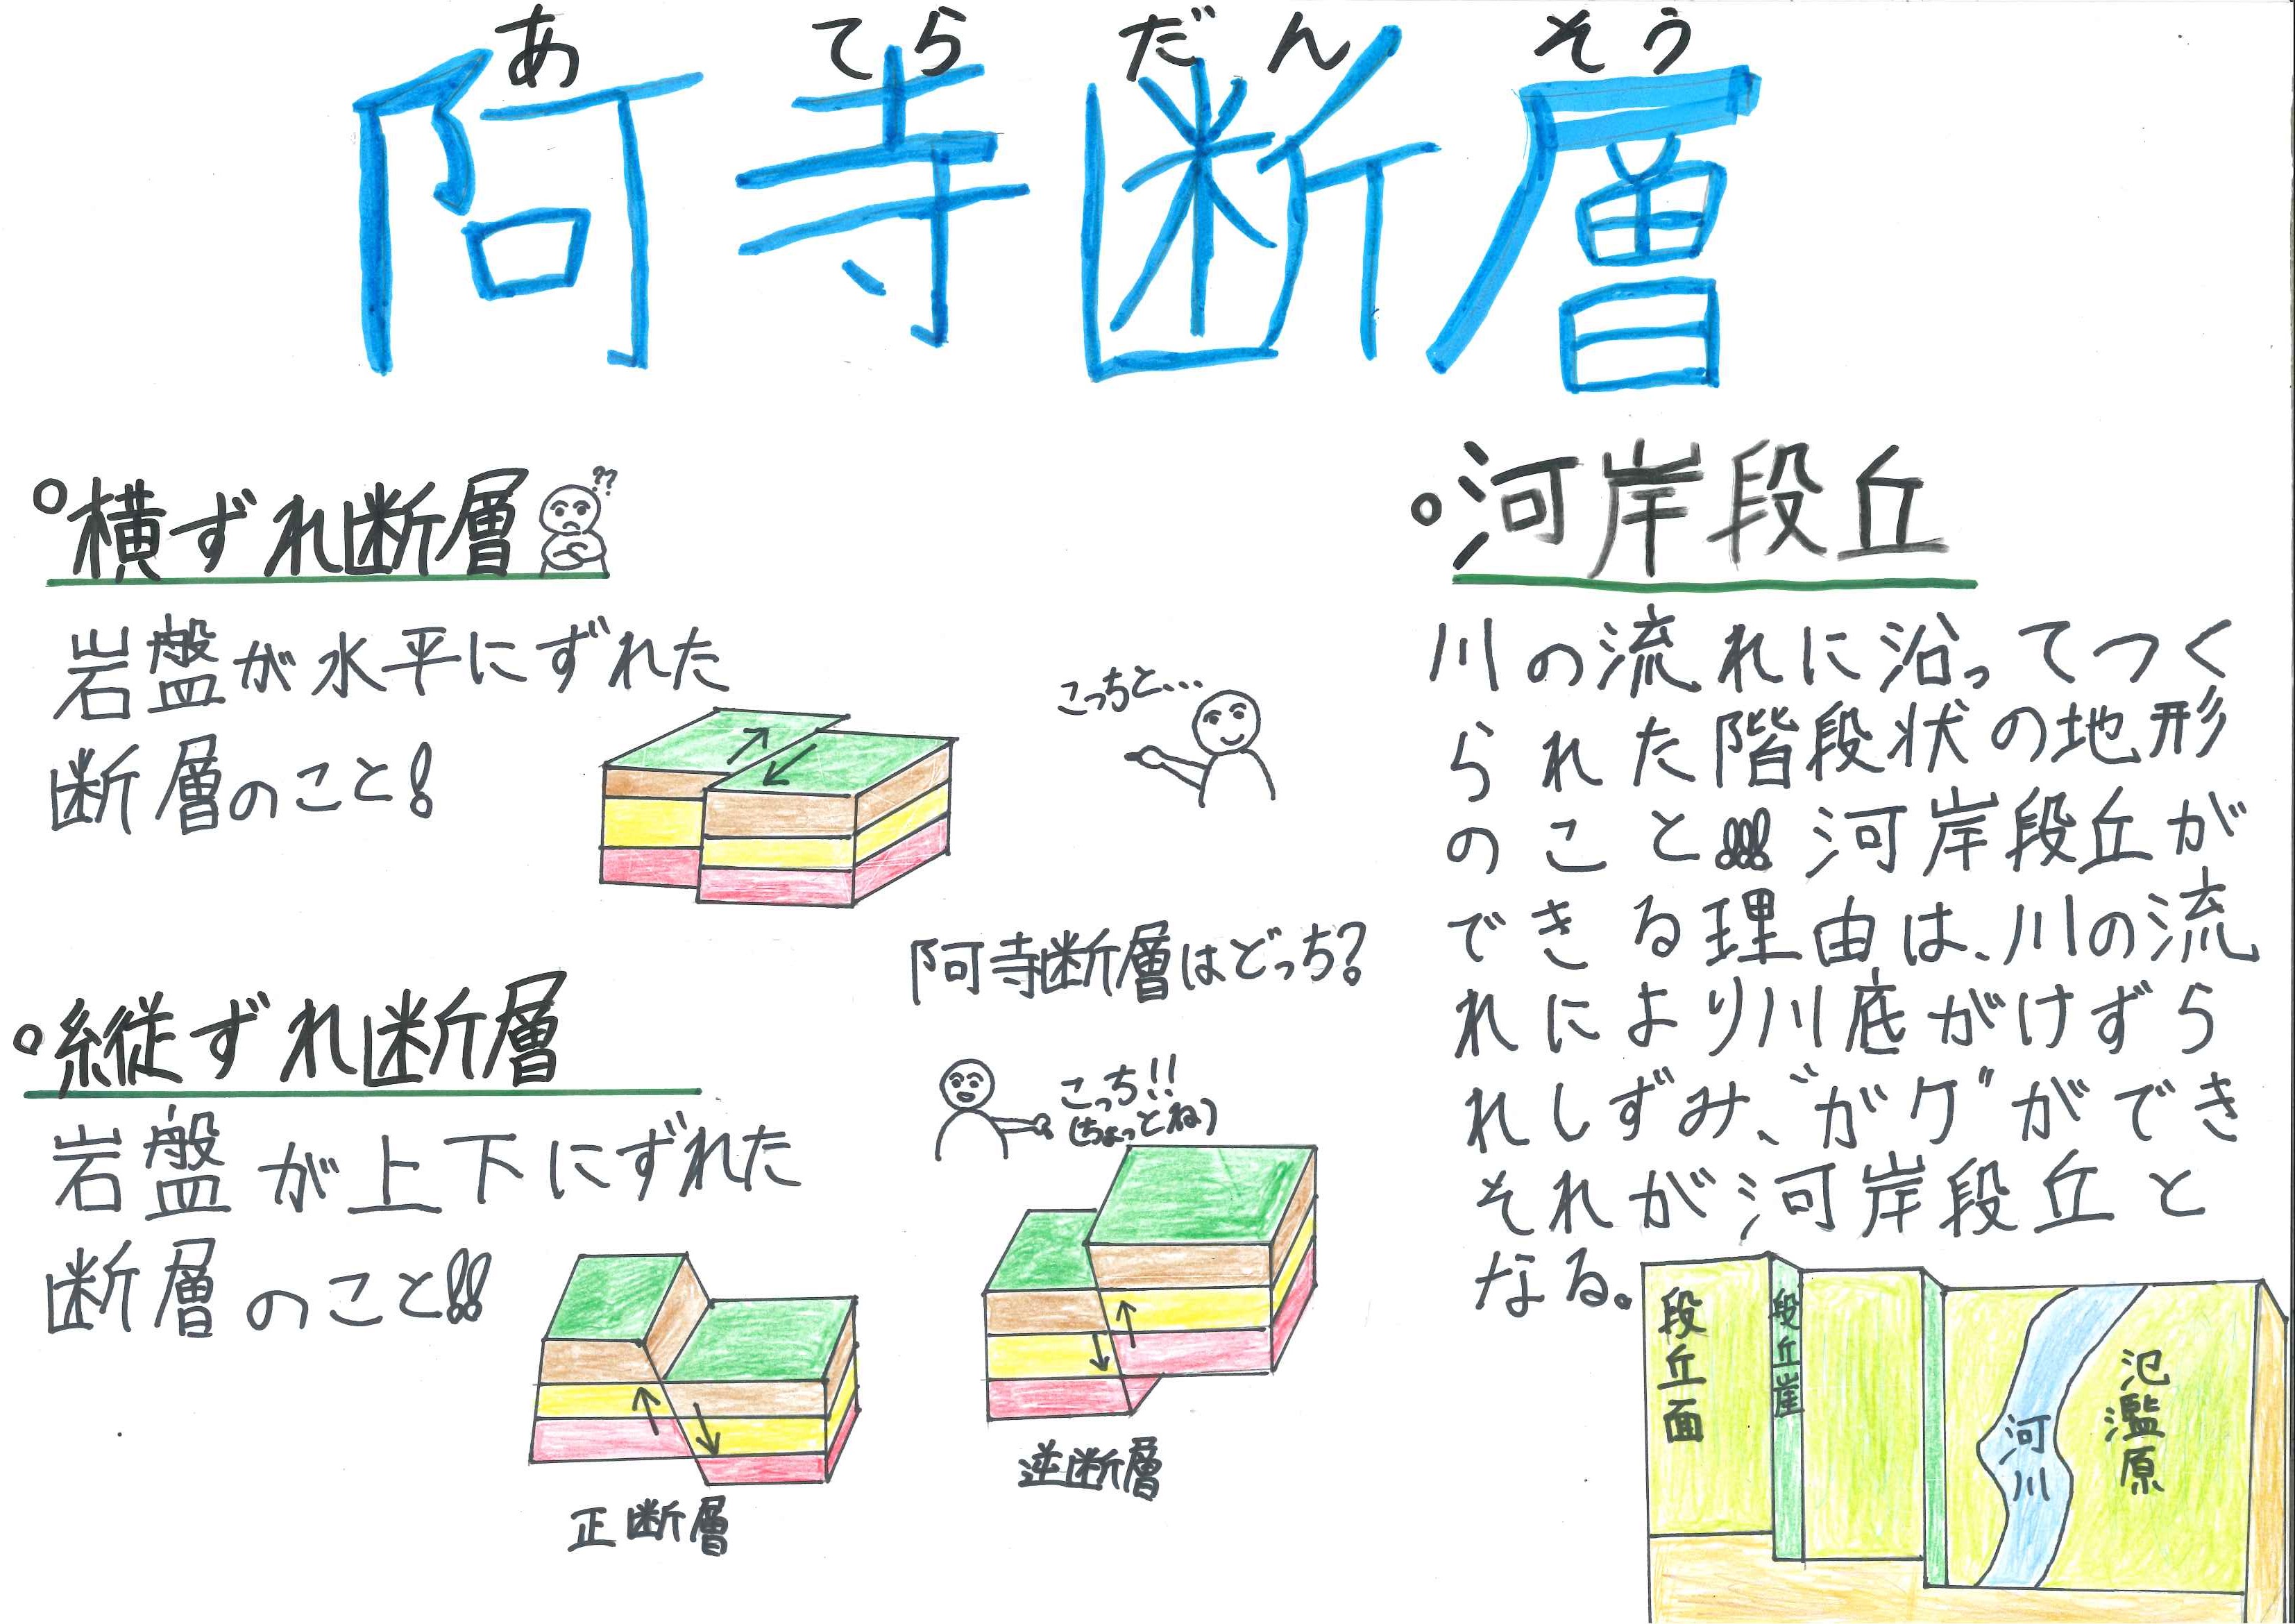 あてらだんそう
阿寺断層
。横ずれ断層
??
岩盤が水平にずれた
断層のこと!
こっちと…
阿寺断層はどっち?
。縦ずれ断層
岩盤が上下にずれた
断層のこと!!
こっち!!
(ちょっとね)
正断層
逆断層
。河岸段丘
川の流れに沿ってつく
られた階段状の地形
のこと!!!河岸段丘が
できる理由は、川の流
れにより川底がけずら
れしずみ、"ガケ"ができ
それが河岸段丘と
なる。
段丘面
段丘崖
河川
氾濫原